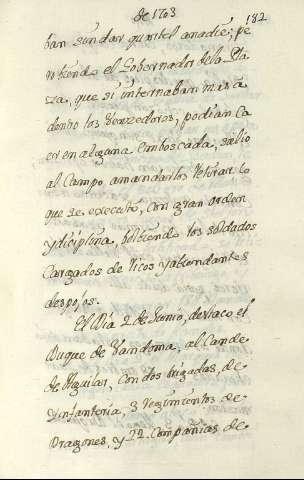 de 1703
182
ban sin dar quartel anadie; pe
ro biendo el Gobernador de la Pla
za, que si internaban mas a
dentro los Venzedores, podian ca
er en alguna emboscada, salio
al Campo amandarlos retirar lo
que se executó, con gran orden
y disciplina, bolbiendo los soldados
Cargados de ricos y abundantes
despojos.
El Dia 2 de Junio, destaco el
Duque de Vandoma, al Conde
de Aguilar, con dos brigadas, de
Ynfanteria, 3 regimientos de
Dragones, y 22 Compañias de